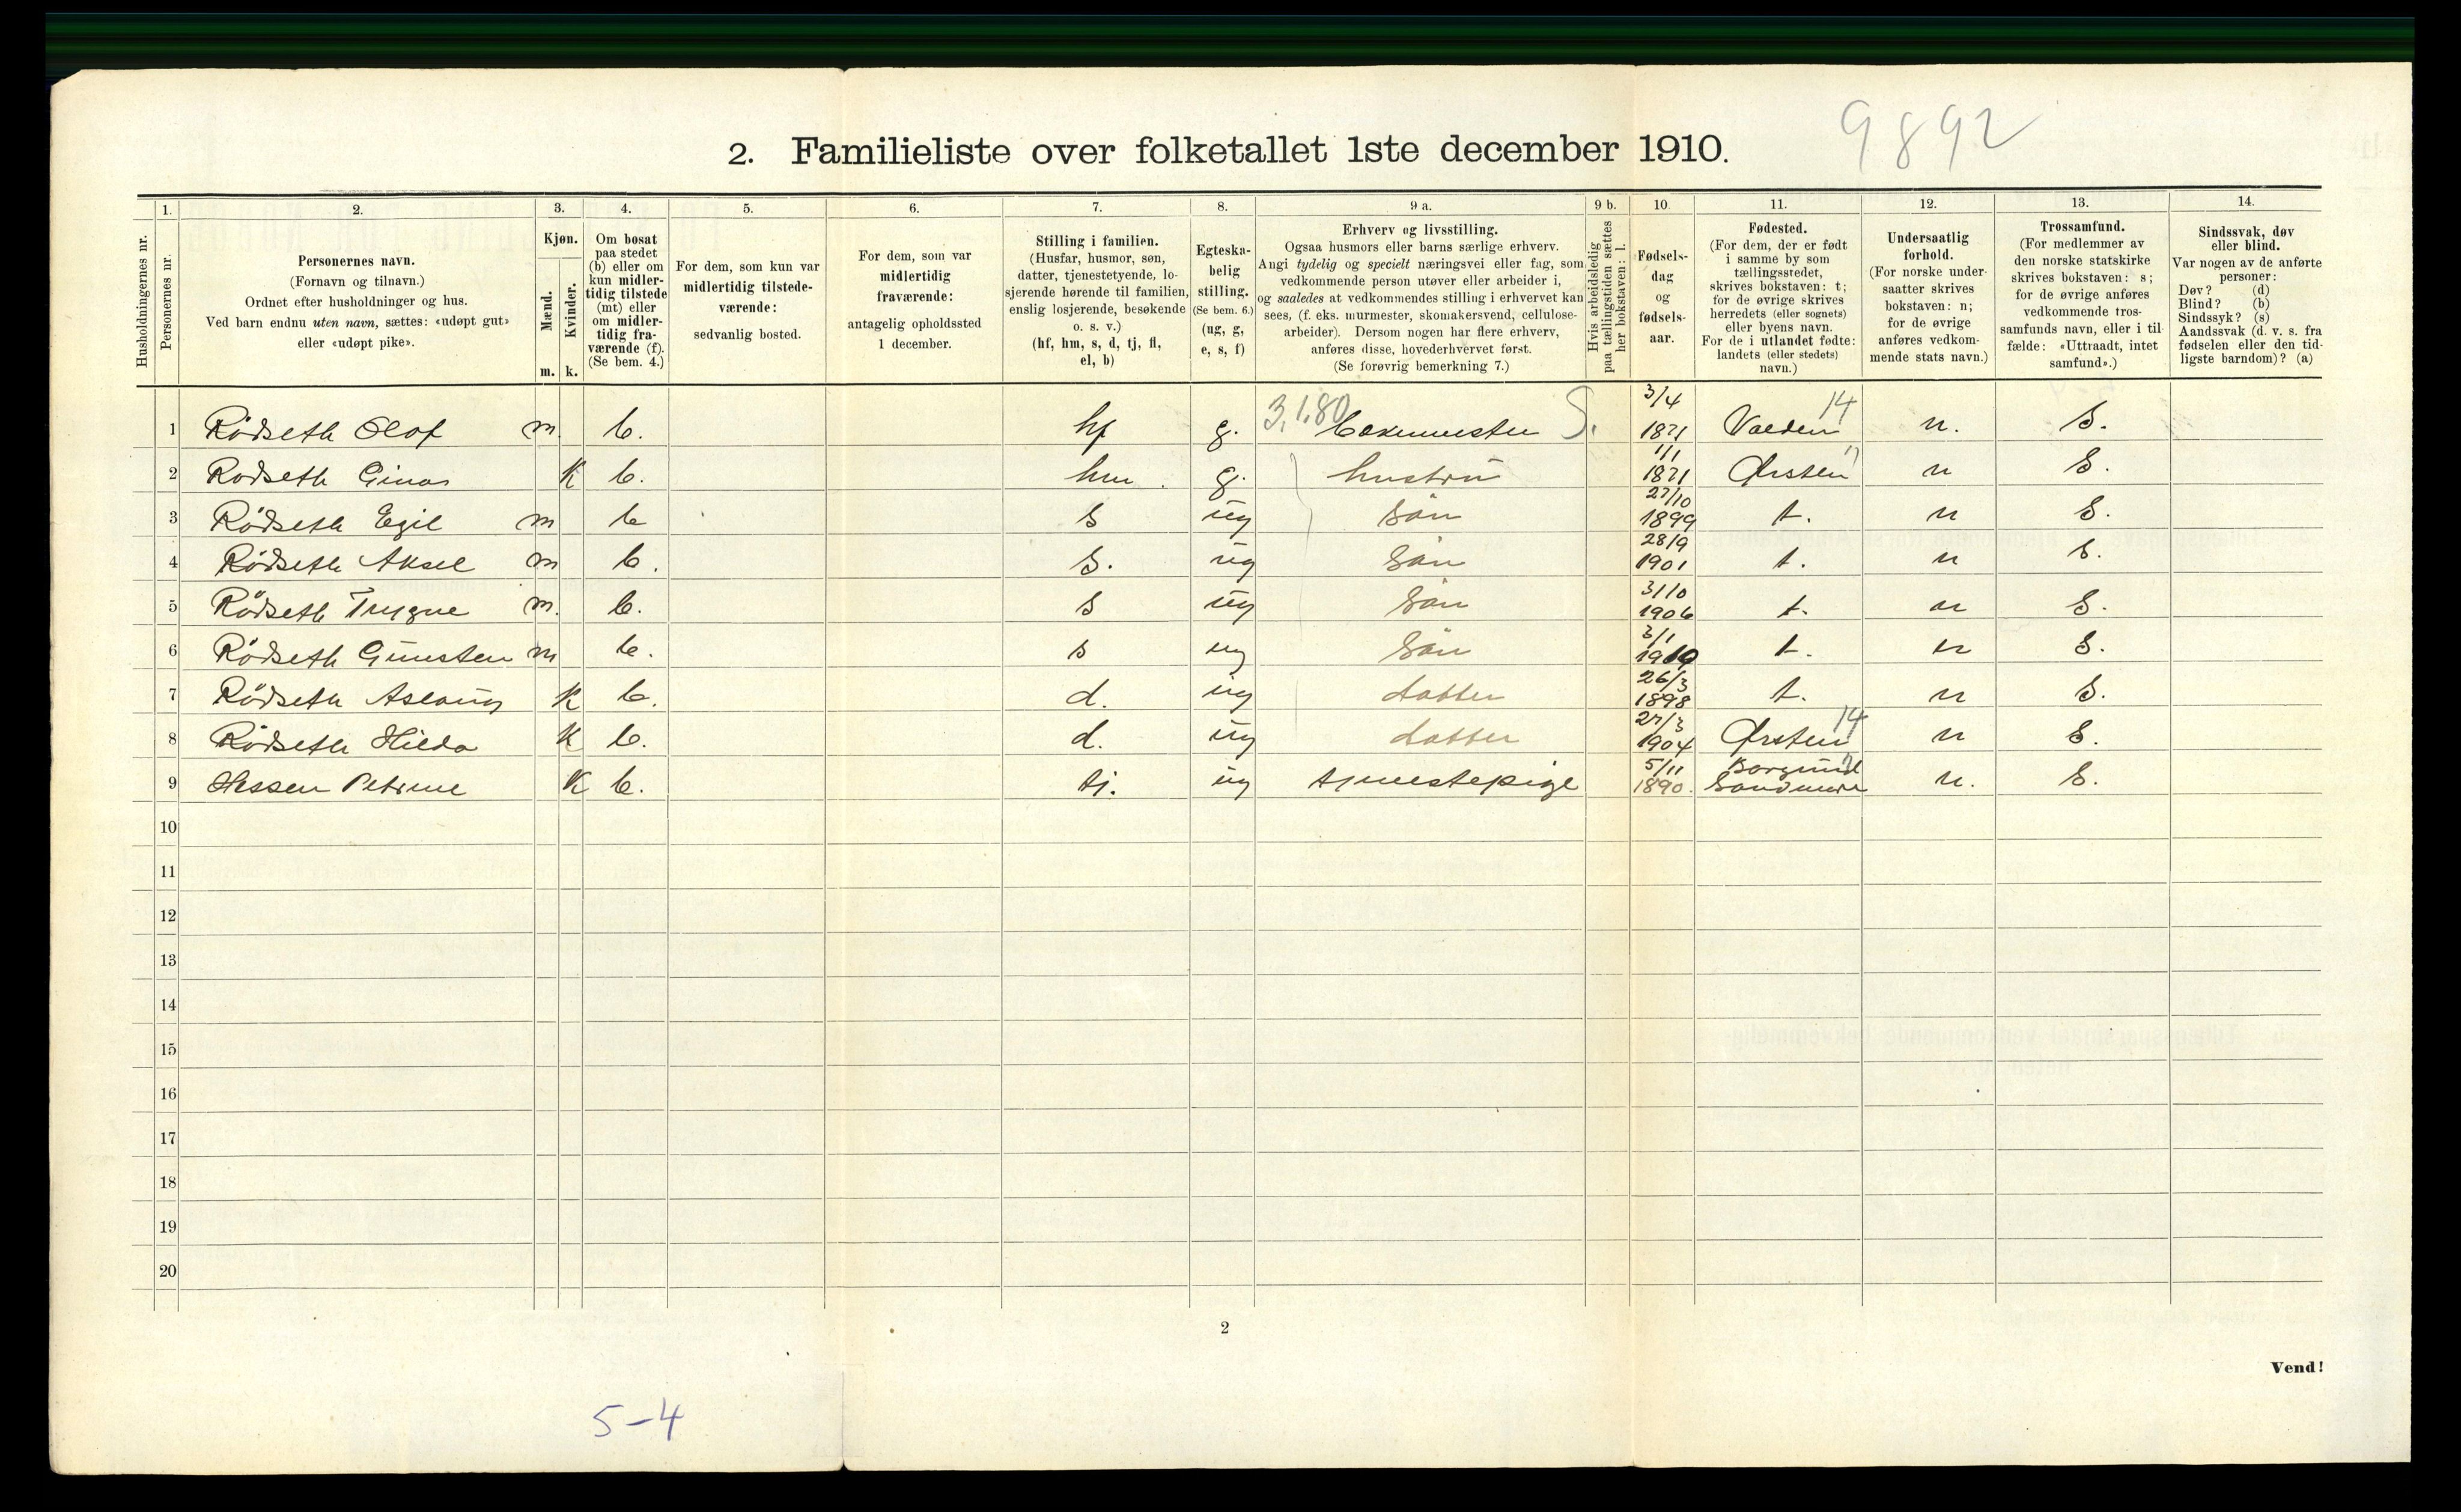 9892
2. Familieliste over folketallet 1ste december 1910.
1. 2. 3. 4. 5. 6. 7. 8. 9 a. 9 b. 10. 11. 12. 13. 14.
Husholdningernes nr.
Personernes nr.
Personernes navn.
(Fornavn og tilnavn.)
Ordnet efter husholdninger og hus.
Ved barn endnu uten navn, sættes: «udøpt gut»
eller «udøpt pike».
Kjøn.
Mænd.
Kvinder.
m. k.
Om bosat
paa stedet
(b) eller om
kun midler-
tidig tilstede
(mt) eller
om midler-
tidig fra-
værende (f).
(Se bem. 4.)
For dem, som kun var
midlertidig tilstede-
værende:
sedvanlig bosted.
For dem, som var
midlertidig
fraværende:
antagelig opholdssted
1 december.
Stilling i familien.
(Husfar, husmor, søn,
datter, tjenestetyende, lo-
sjerende hørende til familien,
enslig losjerende, besøkende
o. s. v.)
(hf, hm, s, d, tj, fl,
el, b)
Egteska-
belig
stilling.
(Se bem. 6.)
(ug, g,
e, s, f)
Erhverv og livsstilling.
Ogsaa husmors eller barns særlige erhverv.
Angi tydelig og specielt næringsvei eller fag, som
vedkommende person utøver eller arbeider i,
og saaledes at vedkommendes stilling i erhvervet kan
sees, (f. eks. murmester, skomakersvend, cellulose-
arbeider). Dersom nogen har flere erhverv,
anføres disse, hovederhvervet først.
(Se forøvrig bemerkning 7.)
Hvis arbeidsledig
paa tællingstiden sættes
her bokstaven: l.
Fødsels-
dag
og
fødsels-
aar.
Fødested.
(For dem, der er født
i samme by som
tællingsstedet,
skrives bokstaven: t;
for de øvrige skrives
herredets (eller sognets)
eller byens navn.
For de i utlandet fødte:
landets (eller stedets)
navn.)
Undersaatlig
forhold.
(For norske under-
saatter skrives
bokstaven: n;
for de øvrige
anføres vedkom-
mende stats navn.)
Trossamfund.
(For medlemmer av
den norske statskirke
skrives bokstaven: s;
for de øvrige anføres
vedkommende tros-
samfunds navn, eller i til-
fælde: «Uttraadt, intet
samfund».)
Sindssvak, døv
eller blind.
Var nogen av de anførte
personer:
Døv? (d)
Blind? (b)
Sindssyk? (s)
Aandssvak (d. v. s. fra
fødselen eller den tid-
ligste barndom)? (a)
1 Rödseth Olof m. b. hf g. 3.1.80 S. 3/4 1871 Volden 14 n. S.
2 Rodseth Gina K b. hm. g. hustrü 1/1 1871 Ørsten n S.
3 Rödseth Egil m b s üg sön 27/10 1899 t. n S.
4 Rödseth Aksel m b. s. üg sön 28/9 1901 t. n S.
5 Rödseth Trygve m. b. s üg sön 31/10 1906 t. n S.
6 Rödseth Günsten m b. s ug sön 3/1 1910 t. n S.
7 Rödseth Aslaug K b. d. üg datter 26/3 1898 t. n S.
8 Rödseth Hilda K b. d. üg datter 27/3 1904 Ørsten 14 n S.
9 Hessen Petrine K b. tj. üg tjenestepige 5/11 1890. Borgund Sondmøre n. S.
10
11
12
13
14
15
16
17
18
19
20
2
Vend!
5-4